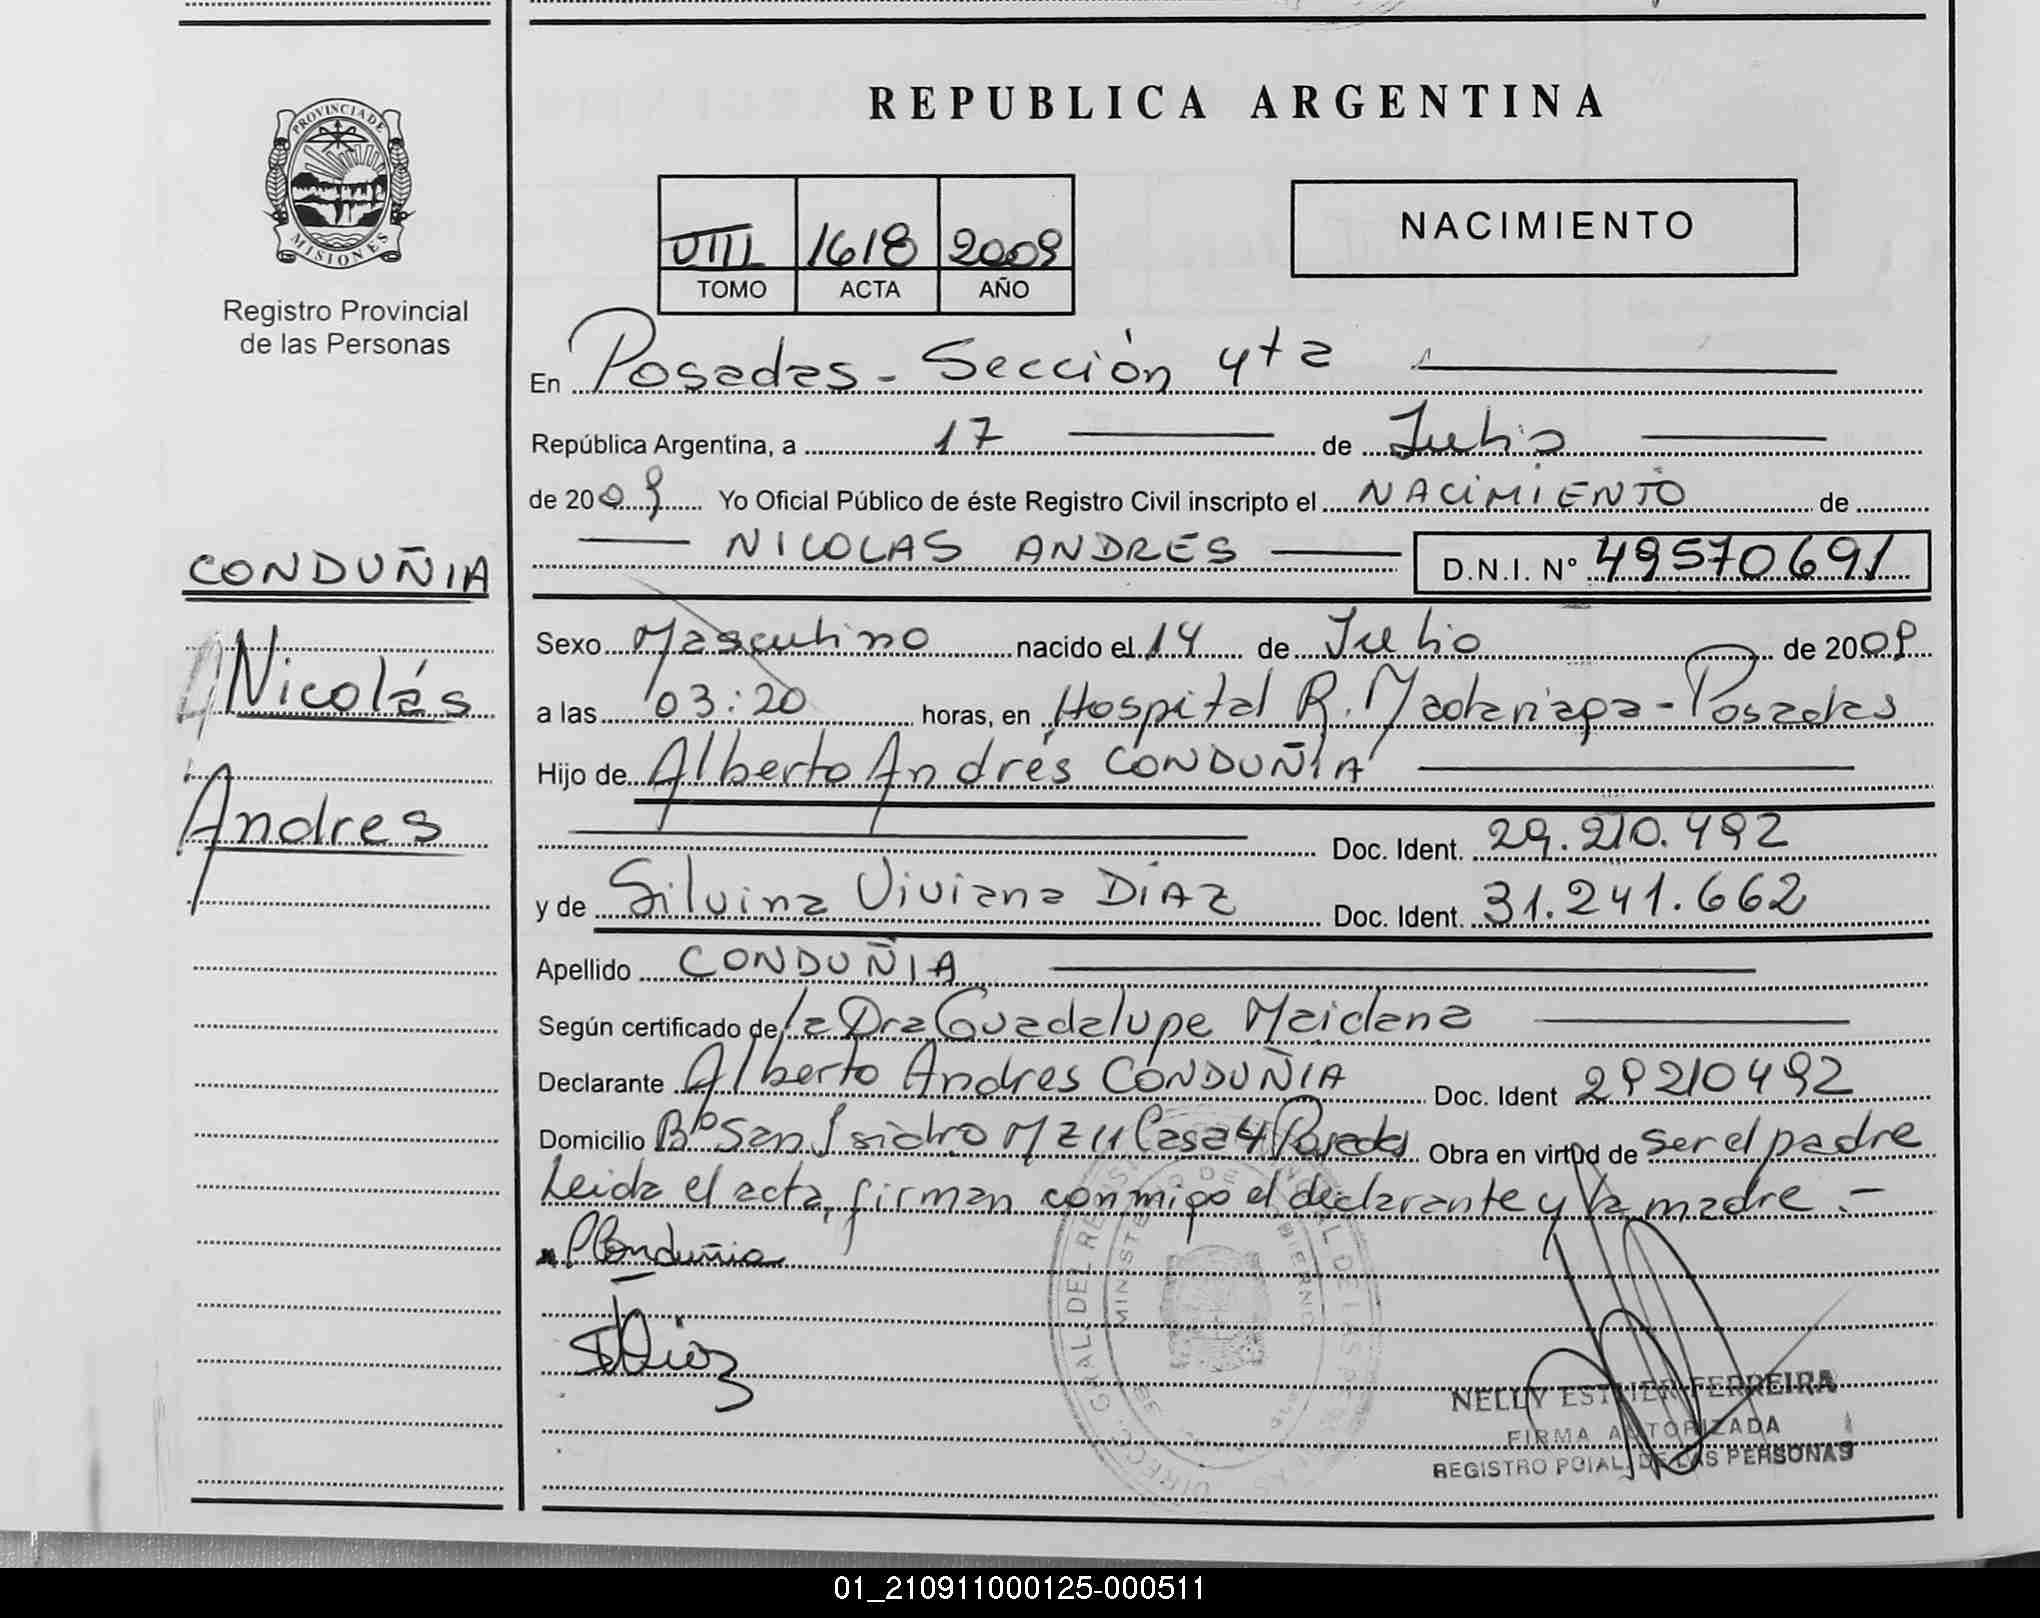 REPUBLICA ARGENTINA
PROVINCIA DE MISIONES
Registro Provincial
de las Personas
VIII 1618 2009
TOMO ACTA AÑO
NACIMIENTO
En Posadas - Sección 4ta
República Argentina, a 17 de Julio
de 2009 Yo Oficial Público de éste Registro Civil inscripto el NACIMIENTO de
NICOLAS ANDRES D.N.I. Nº 49570691
CONDUÑIA
Nicolás
Andres
Sexo Masculino nacido el 14 de Julio de 2009
a las 03:20 horas, en Hospital R. Madariaga - Posadas
Hijo de Alberto Andrés CONDUÑIA
Doc. Ident. 29.210.492
y de Silvina Viviana DIAZ Doc. Ident. 31.241.662
Apellido CONDUÑIA
Según certificado de la Dra Guadalupe Maidana
Declarante Alberto Andres CONDUÑIA Doc. Ident 29210492
Domicilio Bº San Isidro Mz 11 Casa 4 Posadas Obra en virtud de ser el padre
Leida el acta, firman conmigo el declarante y la madre.-
Conduñia
Diaz
MINISTERIO DE GOBIERNO
NELLY ESTHER FERREIRA
FIRMA AUTORIZADA
REGISTRO PCIAL. DE LAS PERSONAS
01_210911000125-000511